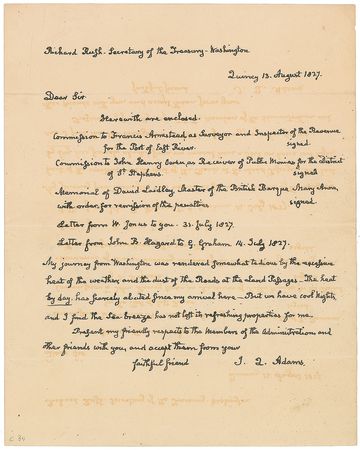 Richard Rush. Secretary of the Treasury - Washington
Quincy 13. August 1827.
Dear Sir
Herewith are enclosed.
Commission to Francis Armistead, as Surveyor and Inspector of the Revenue
for the Port of East River. signed.
Commission to John Henry Owen, as Receiver of Public Monies for the District
of St Stephens. signed
Memorial of David Laidley, Master of the British Barque Mary Ann,
with order, for remission of the penalties. signed
Letter from W. Jones to you. 31. July 1827.
Letter from John B. Hogard to G. Graham 14. July 1827.
My journey from Washington was rendered somewhat tedious by the excessive
heat of the weather, and the dust of the Roads at the Land Passages. The heat
by day, has scarcely abated since my arrival here - But we have cool Nights,
and I find the Sea breeze has not lost its refreshing properties for me.
Present my friendly respects to the Members of the Administration, and
their friends with you, and accept them from your
faithful friend J. Q. Adams.